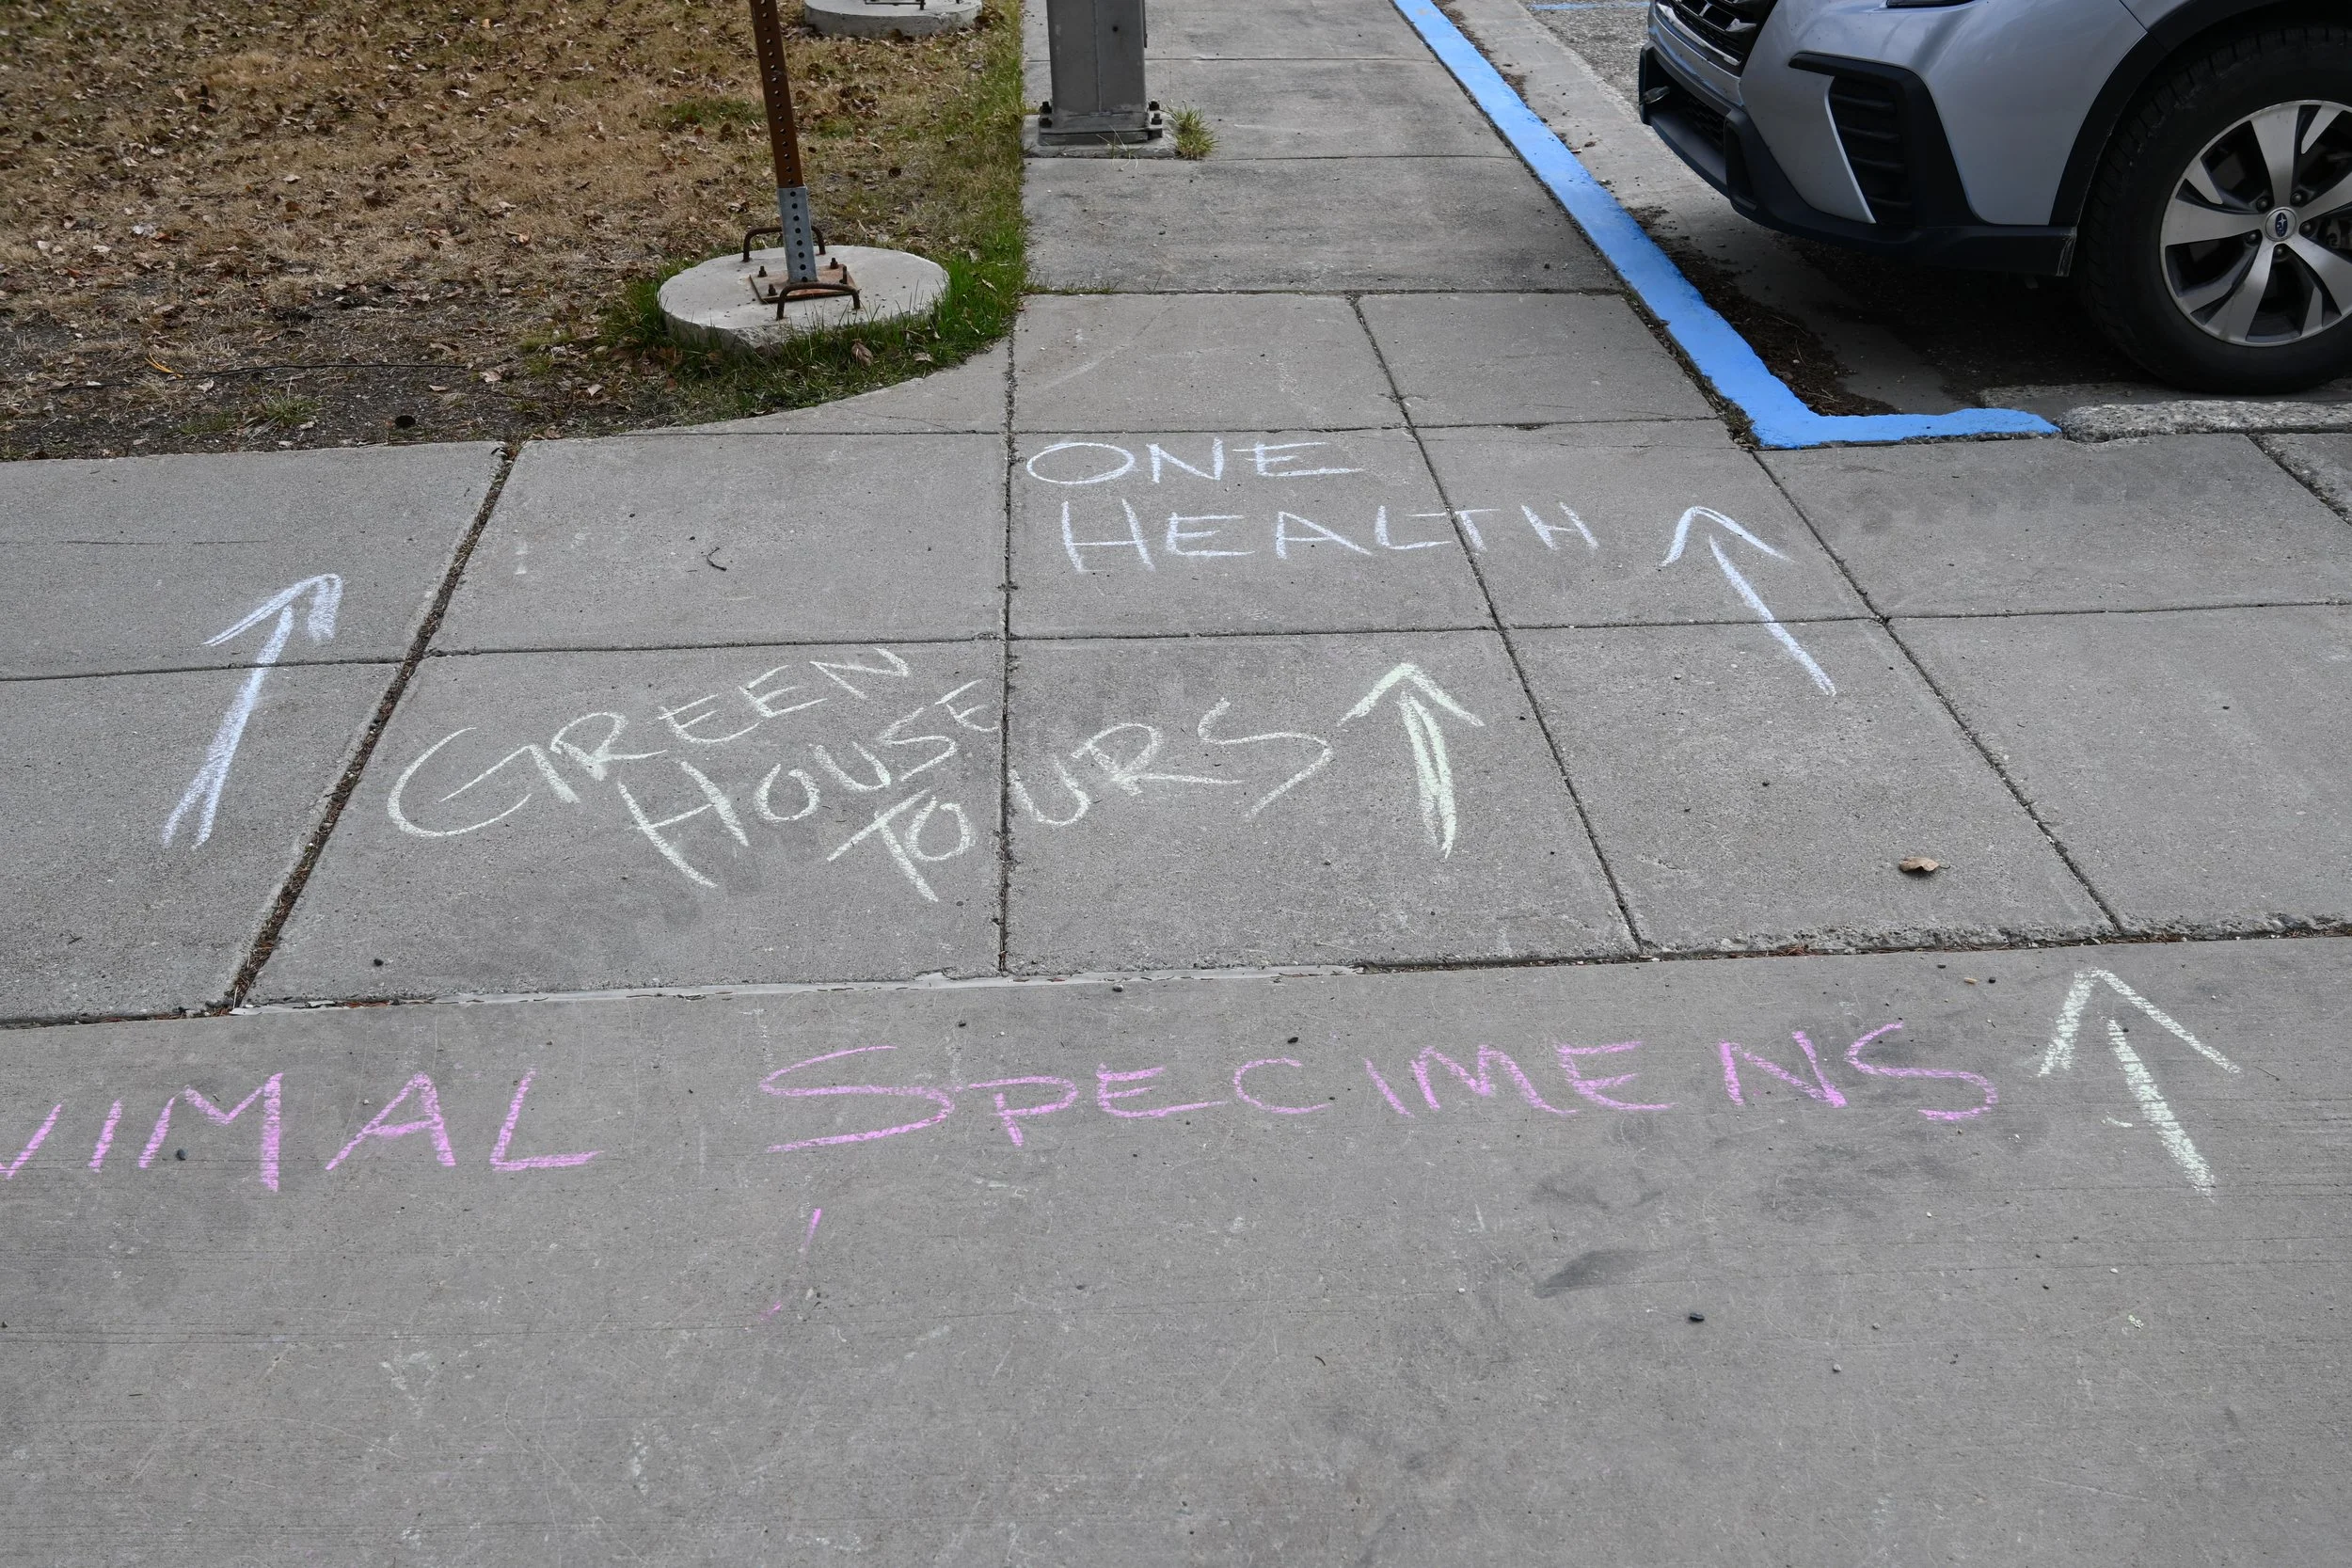 ONE
HEALTH
GREEN
HOUSE
TOURS
NIMAL SPECIMENS